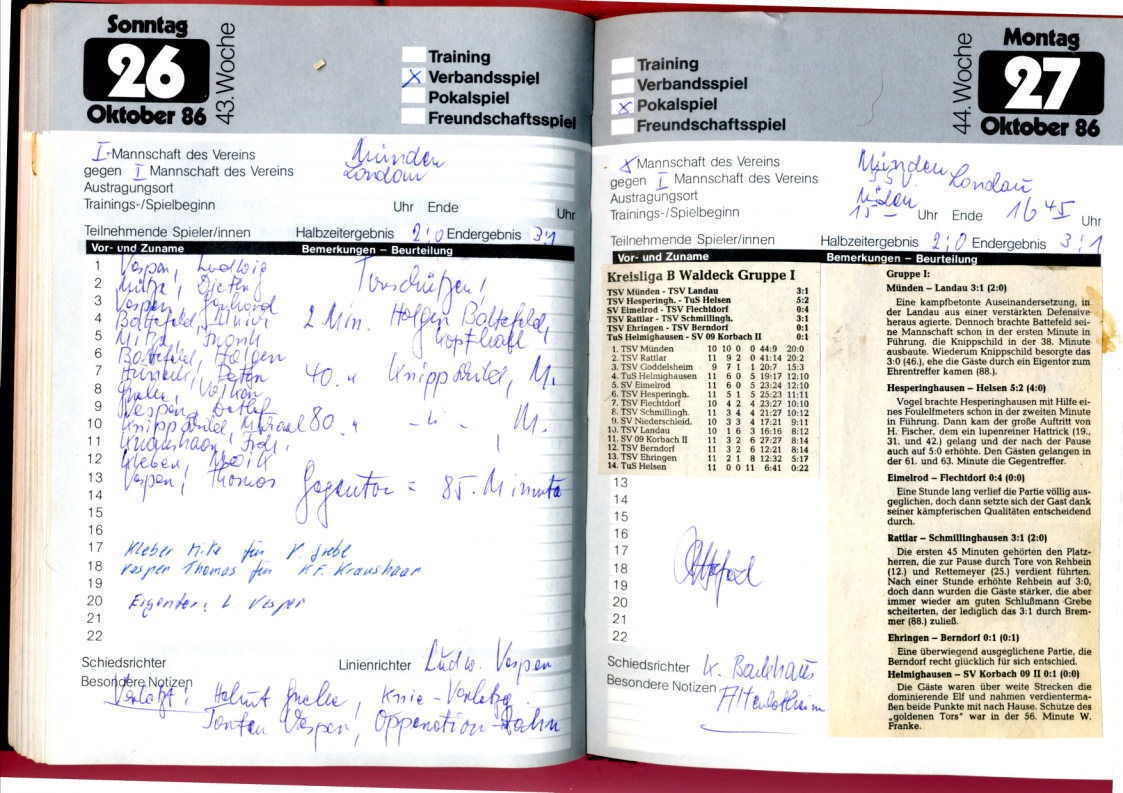 Sonntag
26
Oktober 86
43. Woche
Training
X Verbandsspiel
Pokalspiel
Freundschaftsspiel
I. Mannschaft des Vereins Münden
gegen I Mannschaft des Vereins Londau
Austragungsort
Trainings-/Spielbeginn Uhr Ende Uhr
Teilnehmende Spieler/innen Halbzeitergebnis 2:0 Endergebnis 3:1
Vor- und Zuname Bemerkungen – Beurteilung
1 Vesper, Ludwig Torschützen!
2 Dieter
3 Vesper,
4 Battefeld, 2 Min. Holger Battefeld,
5 Kopfball
6 Battefeld, Holger
7 Peter 40. " Knippschild, M.
8
9 Vesper, Detlef
10 Knippschild 80. " - " - M.
11
12
13 Vesper, Thomas
14 Gegentor = 85. Minute
15
16
17 Kleber Mike für
18 Vesper Thomas für K.F. Kraushaar
19
20 Eigentor: L. Vesper
21
22
Schiedsrichter Linienrichter Ludw. Vesper
Besondere Notizen
Verletzt! Helmut Knie-Verletzg.
Vesper, Operation-
Montag
27
Oktober 86
44. Woche
Training
Verbandsspiel
X Pokalspiel
Freundschaftsspiel
X Mannschaft des Vereins Münden
gegen I Mannschaft des Vereins Londau
Austragungsort Münden
Trainings-/Spielbeginn 15 – Uhr Ende 16 45 Uhr
Teilnehmende Spieler/innen Halbzeitergebnis 2:0 Endergebnis 3:1
Vor- und Zuname Bemerkungen – Beurteilung
Kreisliga B Waldeck Gruppe I
TSV Münden - TSV Landau 3:1
TSV Hesperingh. - TuS Helsen 5:2
SV Eimelrod - TSV Flechtdorf 0:4
TSV Rattlar - TSV Schmillingh. 3:1
TSV Ehringen - TSV Berndorf 0:1
TuS Helmighausen - SV 09 Korbach II 0:1
1. TSV Münden 10 10 0 0 44:9 20:0
2. TSV Rattlar 11 9 2 0 41:14 20:2
3. TSV Goddelsheim 9 7 1 1 20:7 15:3
4. TuS Helmighausen 11 6 0 5 19:17 12:10
5. SV Eimelrod 11 6 0 5 23:24 12:10
6. TSV Hesperingh. 11 5 1 5 25:23 11:11
7. TSV Flechtdorf 10 4 2 4 23:27 10:10
8. TSV Schmillingh. 11 3 4 4 21:27 10:12
9. SV Niederschleid. 10 3 3 4 17:21 9:11
10. TSV Landau 10 1 6 3 16:16 8:12
11. SV 09 Korbach II 11 3 2 6 27:27 8:14
12. TSV Berndorf 11 3 2 6 12:21 8:14
13. TSV Ehringen 11 2 1 8 12:32 5:17
14. TuS Helsen 11 0 0 11 6:41 0:22
13
14
15
16
17
18
19
20
21
22
Schiedsrichter K. Backhaus
Besondere Notizen Altenlotheim
Gruppe I:
Münden – Landau 3:1 (2:0)
Eine kampfbetonte Auseinandersetzung, in
der Landau aus einer verstärkten Defensive
heraus agierte. Dennoch brachte Battefeld sei-
ne Mannschaft schon in der ersten Minute in
Führung, die Knippschild in der 38. Minute
ausbaute. Wiederum Knippschild besorgte das
3:0 (46.), ehe die Gäste durch ein Eigentor zum
Ehrentreffer kamen (88.).
Hesperinghausen – Helsen 5:2 (4:0)
Vogel brachte Hesperinghausen mit Hilfe ei-
nes Foulelfmeters schon in der zweiten Minute
in Führung. Dann kam der große Auftritt von
H. Fischer, dem ein lupenreiner Hattrick (19.,
31. und 42.) gelang und der nach der Pause
auch auf 5:0 erhöhte. Den Gästen gelangen in
der 61. und 63. Minute die Gegentreffer.
Eimelrod – Flechtdorf 0:4 (0:0)
Eine Stunde lang verlief die Partie völlig aus-
geglichen, doch dann setzte sich der Gast dank
seiner kämpferischen Qualitäten entscheidend
durch.
Rattlar – Schmillinghausen 3:1 (2:0)
Die ersten 45 Minuten gehörten den Platz-
herren, die zur Pause durch Tore von Rehbein
(12.) und Rettemeyer (25.) verdient führten.
Nach einer Stunde erhöhte Rehbein auf 3:0,
doch dann wurden die Gäste stärker, die aber
immer wieder am guten Schlußmann Grebe
scheiterten, der lediglich das 3:1 durch Brem-
mer (88.) zuließ.
Ehringen – Berndorf 0:1 (0:1)
Eine überwiegend ausgeglichene Partie, die
Berndorf recht glücklich für sich entschied.
Helmighausen – SV Korbach 09 II 0:1 (0:0)
Die Gäste waren über weite Strecken die
dominierende Elf und nahmen verdienterma-
ßen beide Punkte mit nach Hause. Schütze des
„goldenen Tors" war in der 56. Minute W.
Franke.